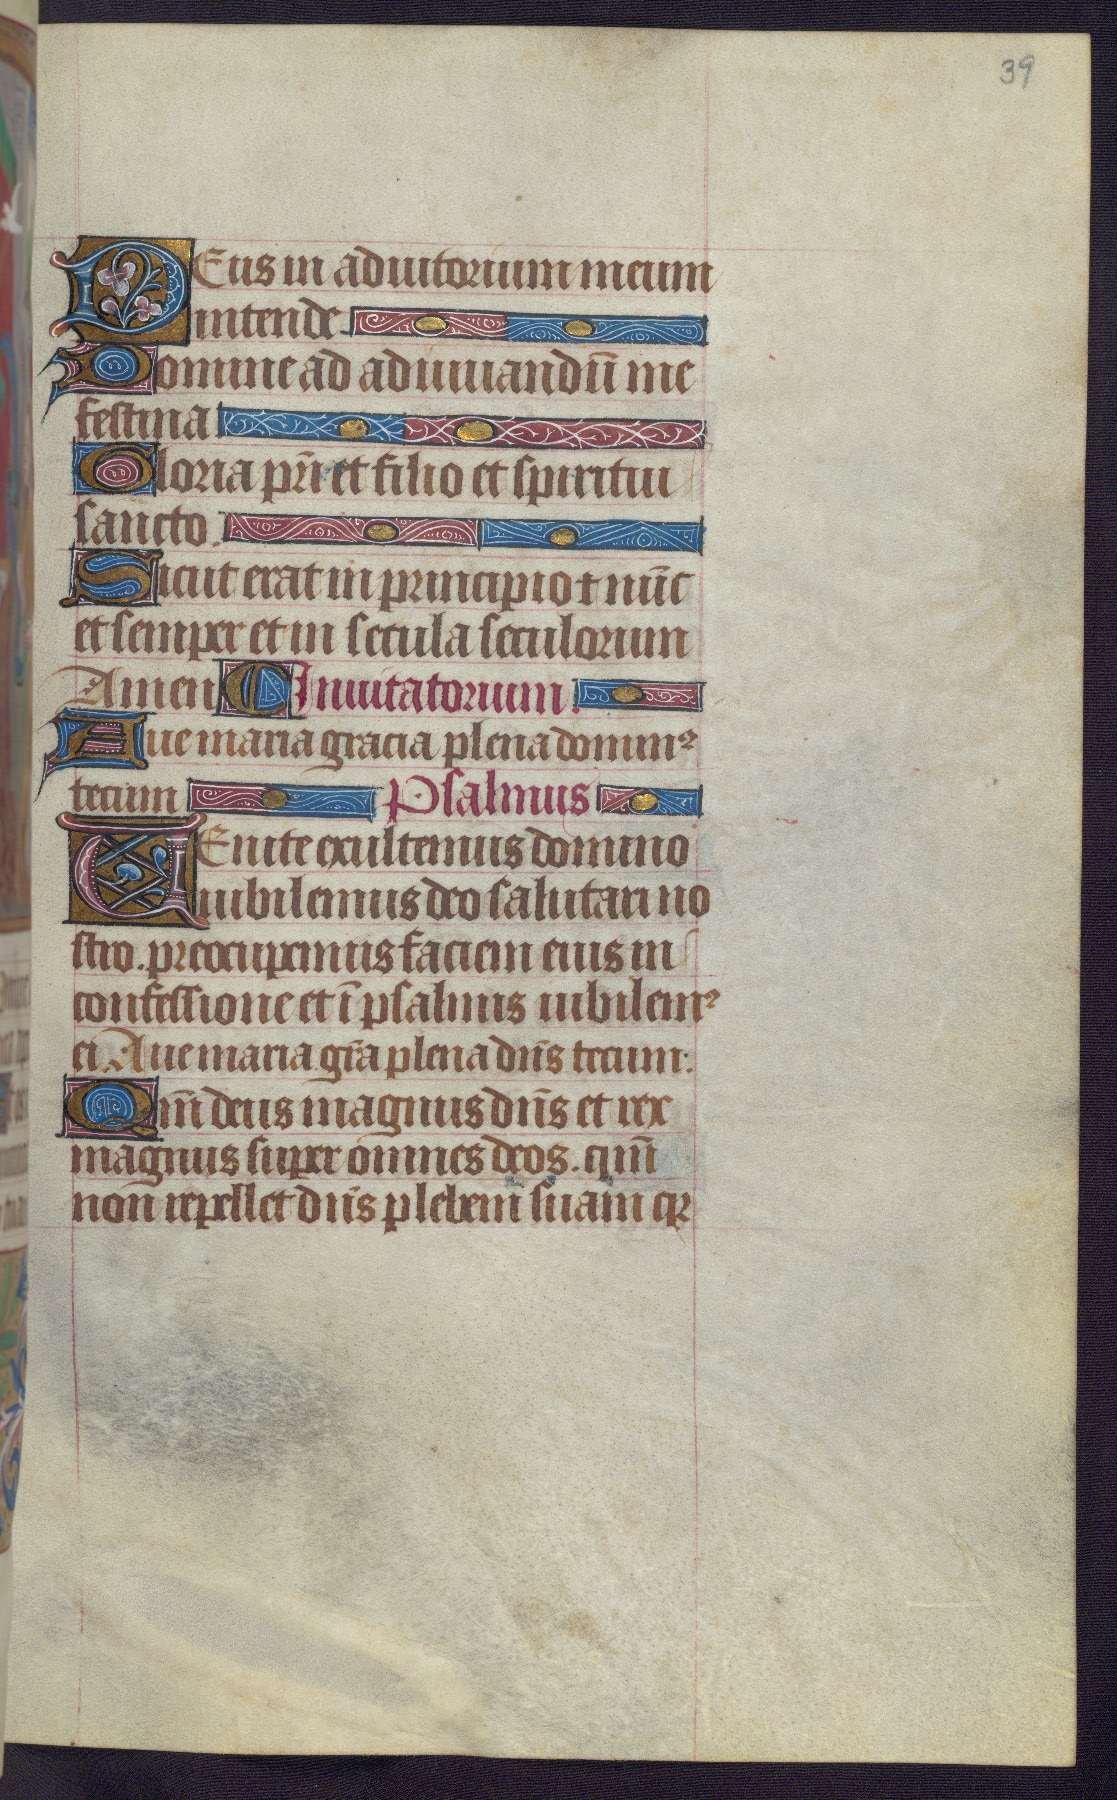 39
Deus in adiutorium meum
intende.
Domine ad adiuuandū me
festina
Gloria pr̄i et filio et spiritui
sancto.
Sicut erat in principio ⁊ nūc
et semper et in secula seculorum
Amen Inuitatorium.
Aue maria gracia plena domin⁹
tecum Psalmus
Uenite exultemus domino
iubilemus deo salutari no
stro. preocupemus faciem eius in
confessione et ī psalmis iubilem⁹
ei. Aue maria gr̄a plena dn̄s tecum.
Qm̄ deus magnus dn̄s et rex
magnus super omnes deos. qm̄
non repellet dn̄s plebem suam qꝛ